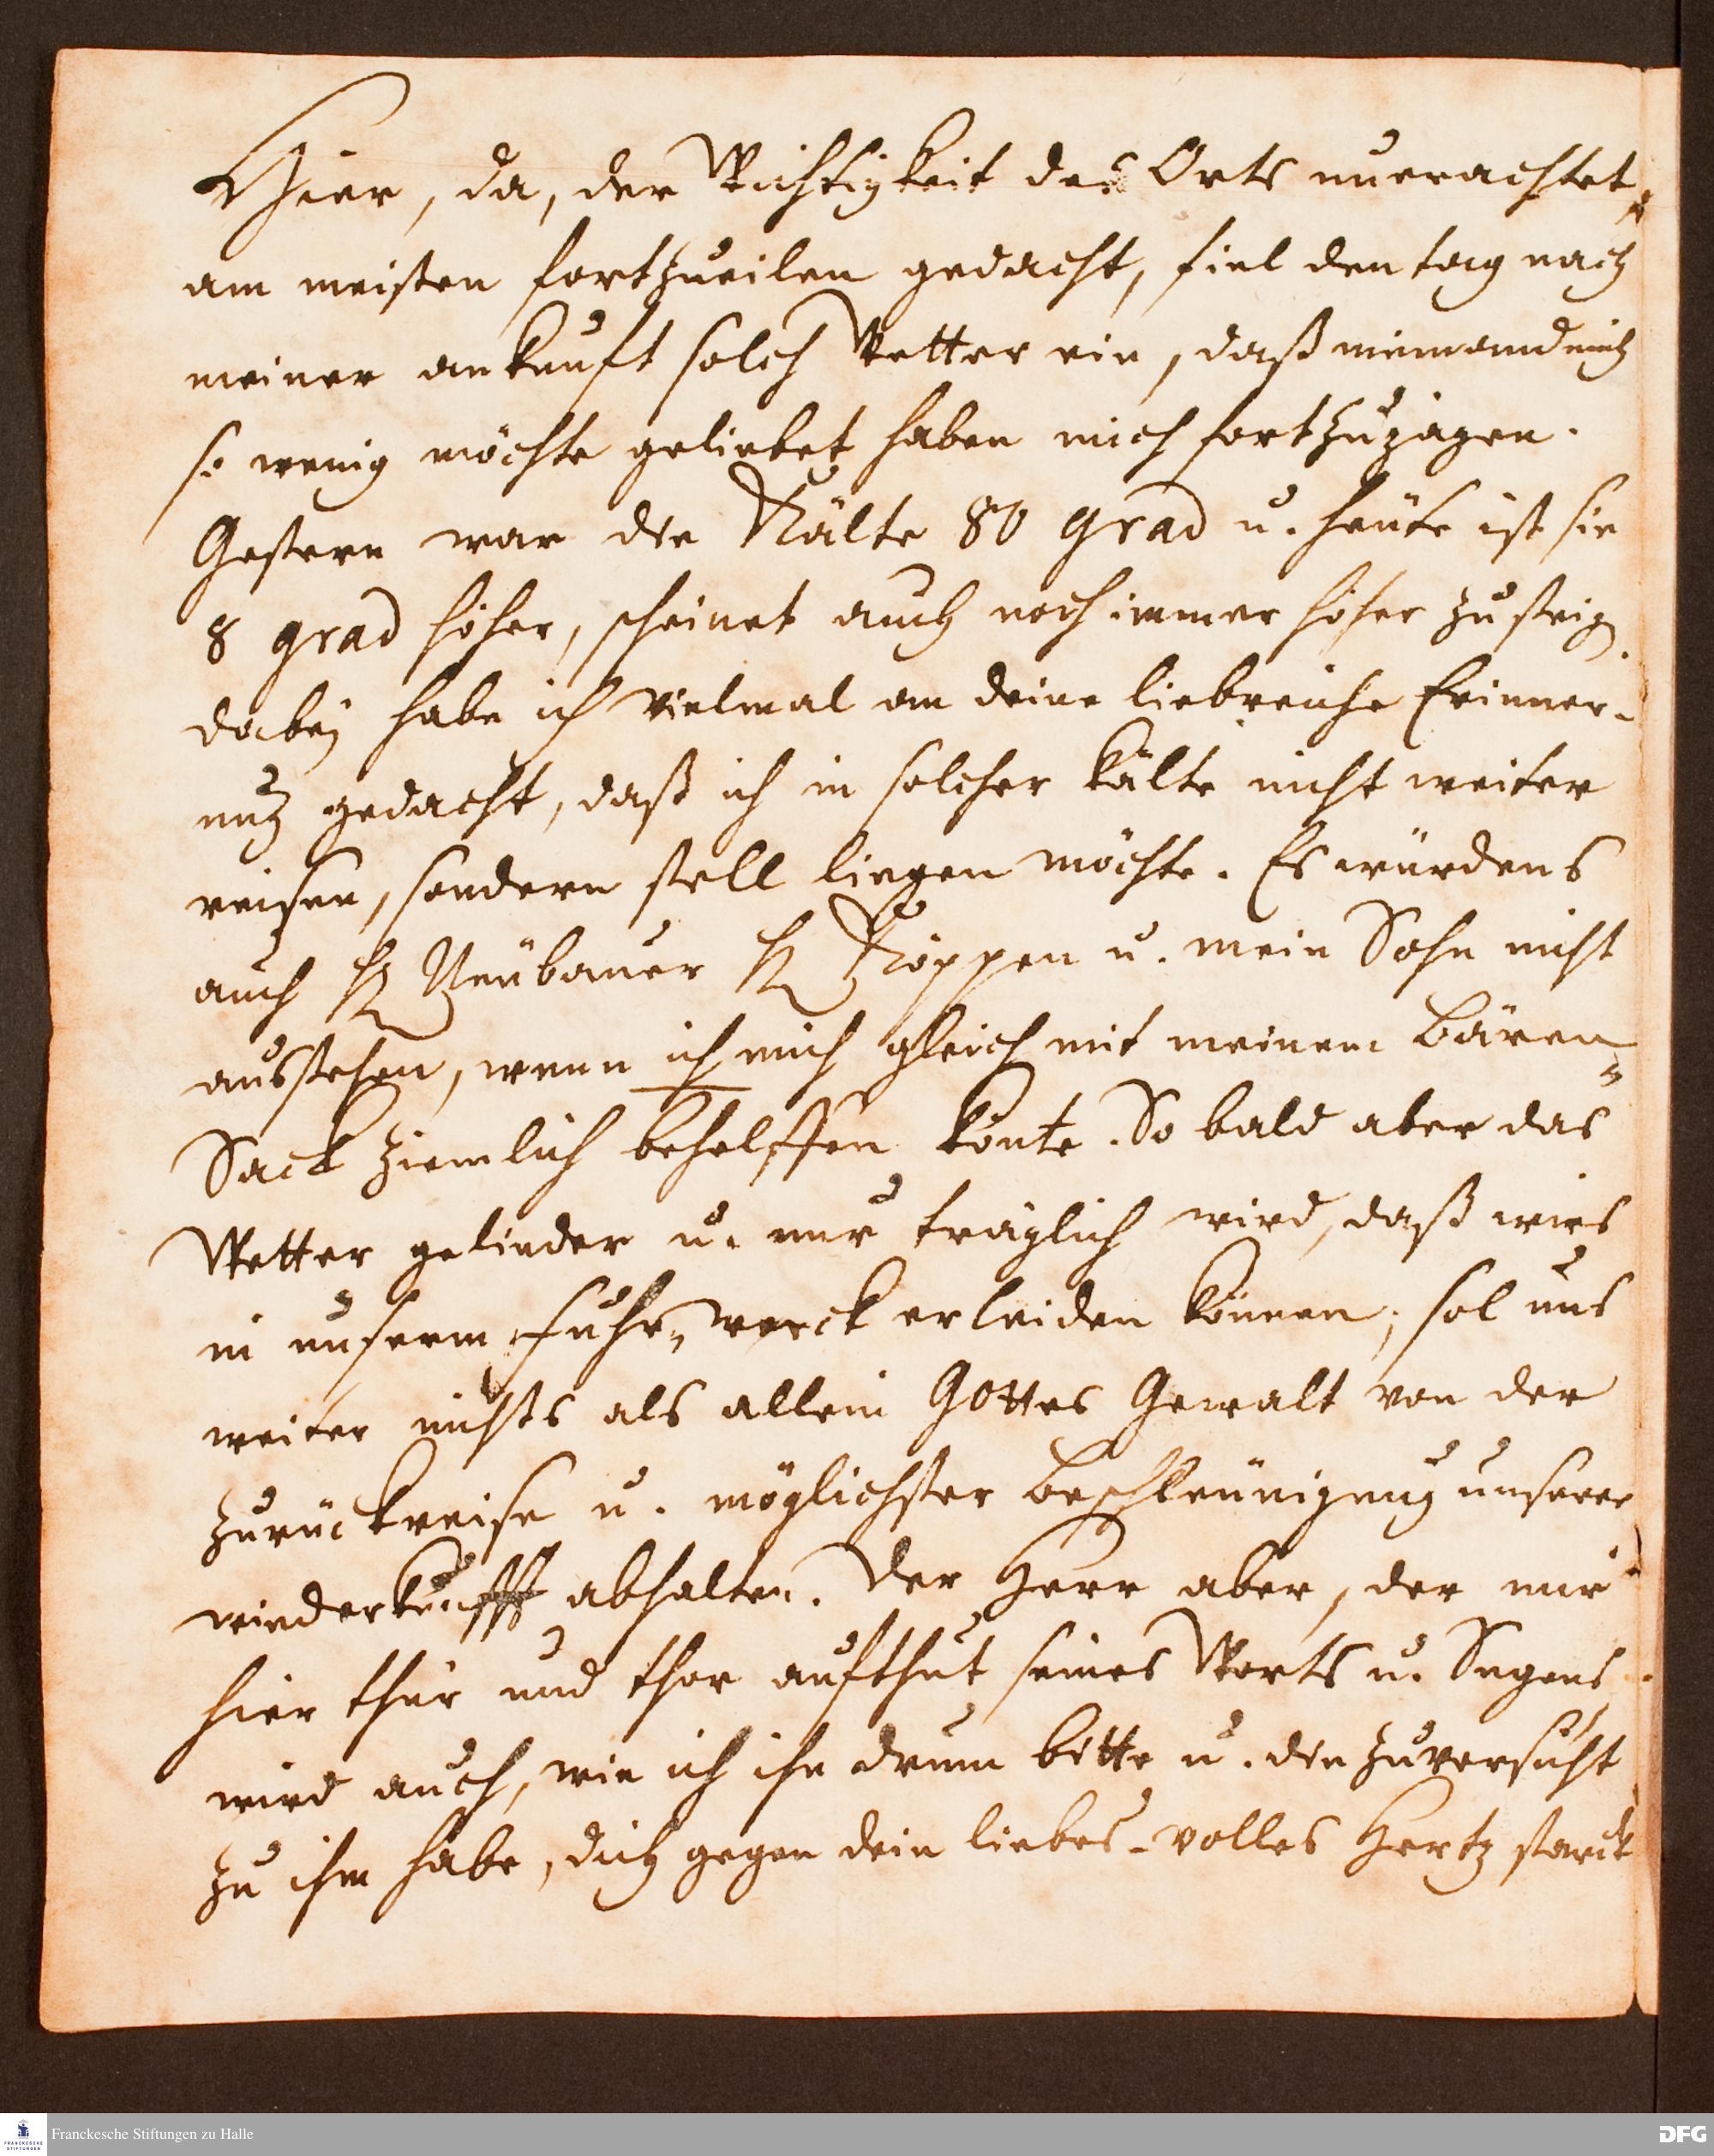 Hier, da, der Wichtigkeit des Orts unerachtet,
am meisten fortzueilen gedacht, fiel den tag nach
meiner ankunft solch Wetter ein, daß niemand mich
so wenig möchte geliebet haben mich fortzujagen.
Gestern war die Kälte 80 grad u. heute ist sie
8 grad höher, scheinet auch noch immer höher zu steig.
dabej habe ich vielmal an deine liebreiche Erinner-
ung gedacht, daß ich in solcher kälte nicht weiter
reisen, sondern still liegen möchte. Es würdens
auch H Neubauer H Köppen u. mein Sohn nicht
ausstehen, wenn ich mich gleich mit meinem Bären=
Sack ziemlich behelffen könte. So bald aber das
Wetter gelinder u. nur träglich wird, daß wirs
in unserm Fuhr=werck erleiden können, sol uns
weiter nichts als allein Gottes Gewalt von der
zurückreise u. möglichster Beschleunigung unserer
wiederkunfft abhalten. Der Herr aber, der mir
hier thür und thor aufthut seines Worts u. Segens
wird auch, wie ich ihn drum bitte u. die zuversicht
zu ihm habe, dich gegen dein liebes-volles Hertz starck
Franckesche Stiftungen zu Halle
FRANCKESCHE STIFTUNGEN
DFG